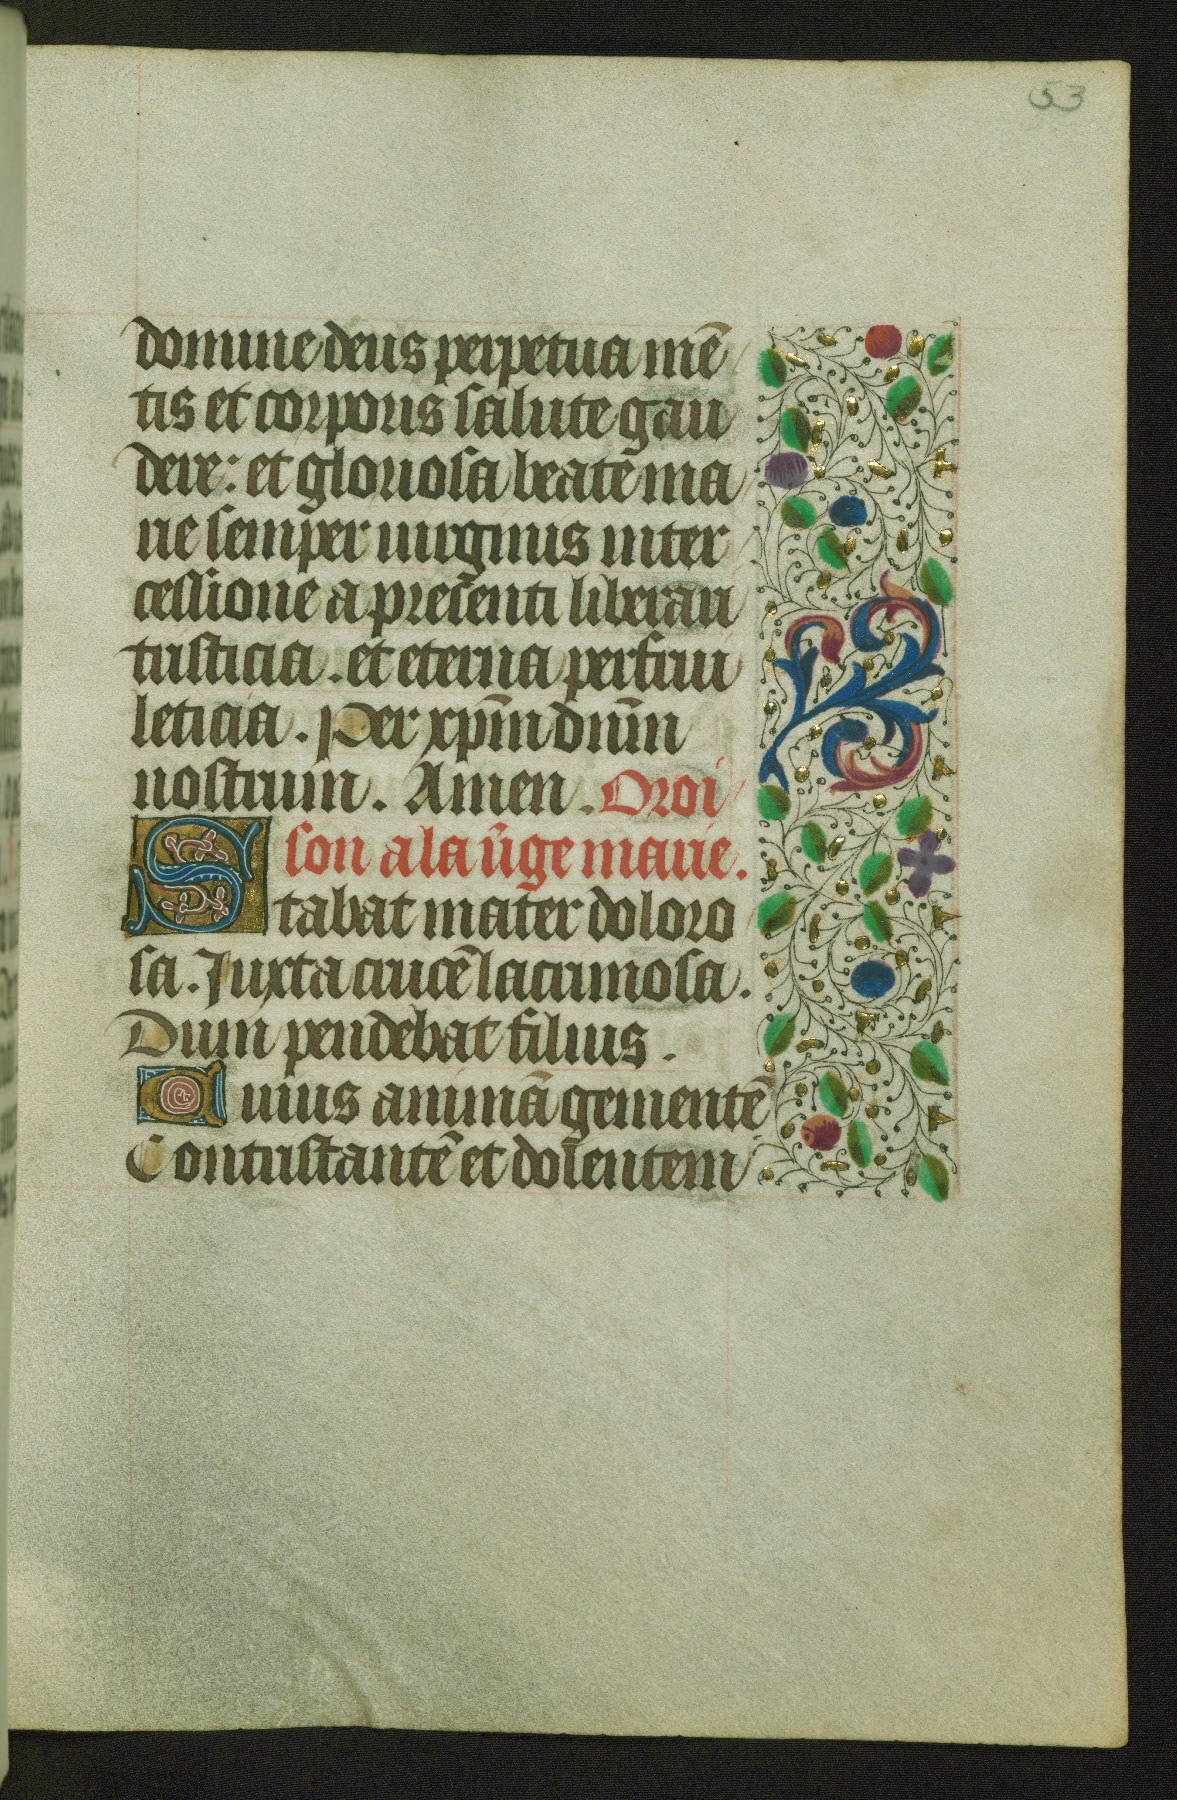 53
domine deus perpetua mē
tis et corporis salute gau
dere: et gloriosa beate ma
rie semper uirginis inter
cessione a presenti liberari
tristicia. et eterna perfrui
leticia. Per xp̄m dn̄m
nostrum. Amen. Oroi
son a la v̄ge marie.
Stabat mater doloro
sa. Iuxta crucē lacrimosa.
Dum pendebat filius.
Cuius animā gementē
Contristantē et dolentem